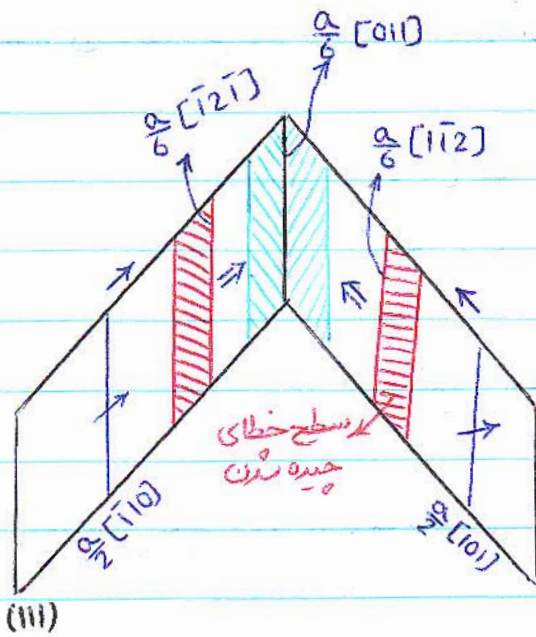 a/6 [011]
a/6 [1̄21̄]
a/6 [11̄2]
سطح خطای
چیده شدن
a/2 [1̄10]
a/2 [101]
(111)